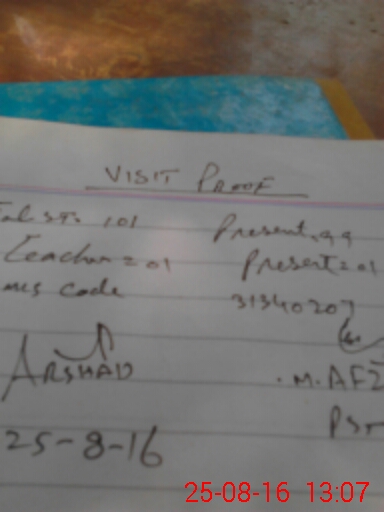 VISIT PROOF
tal ST. 101 Present, 99
Teacher = 01 Present = 01
mis code 31340207
ARSHAD .M.AFZ
25-8-16
25-08-16 13:07